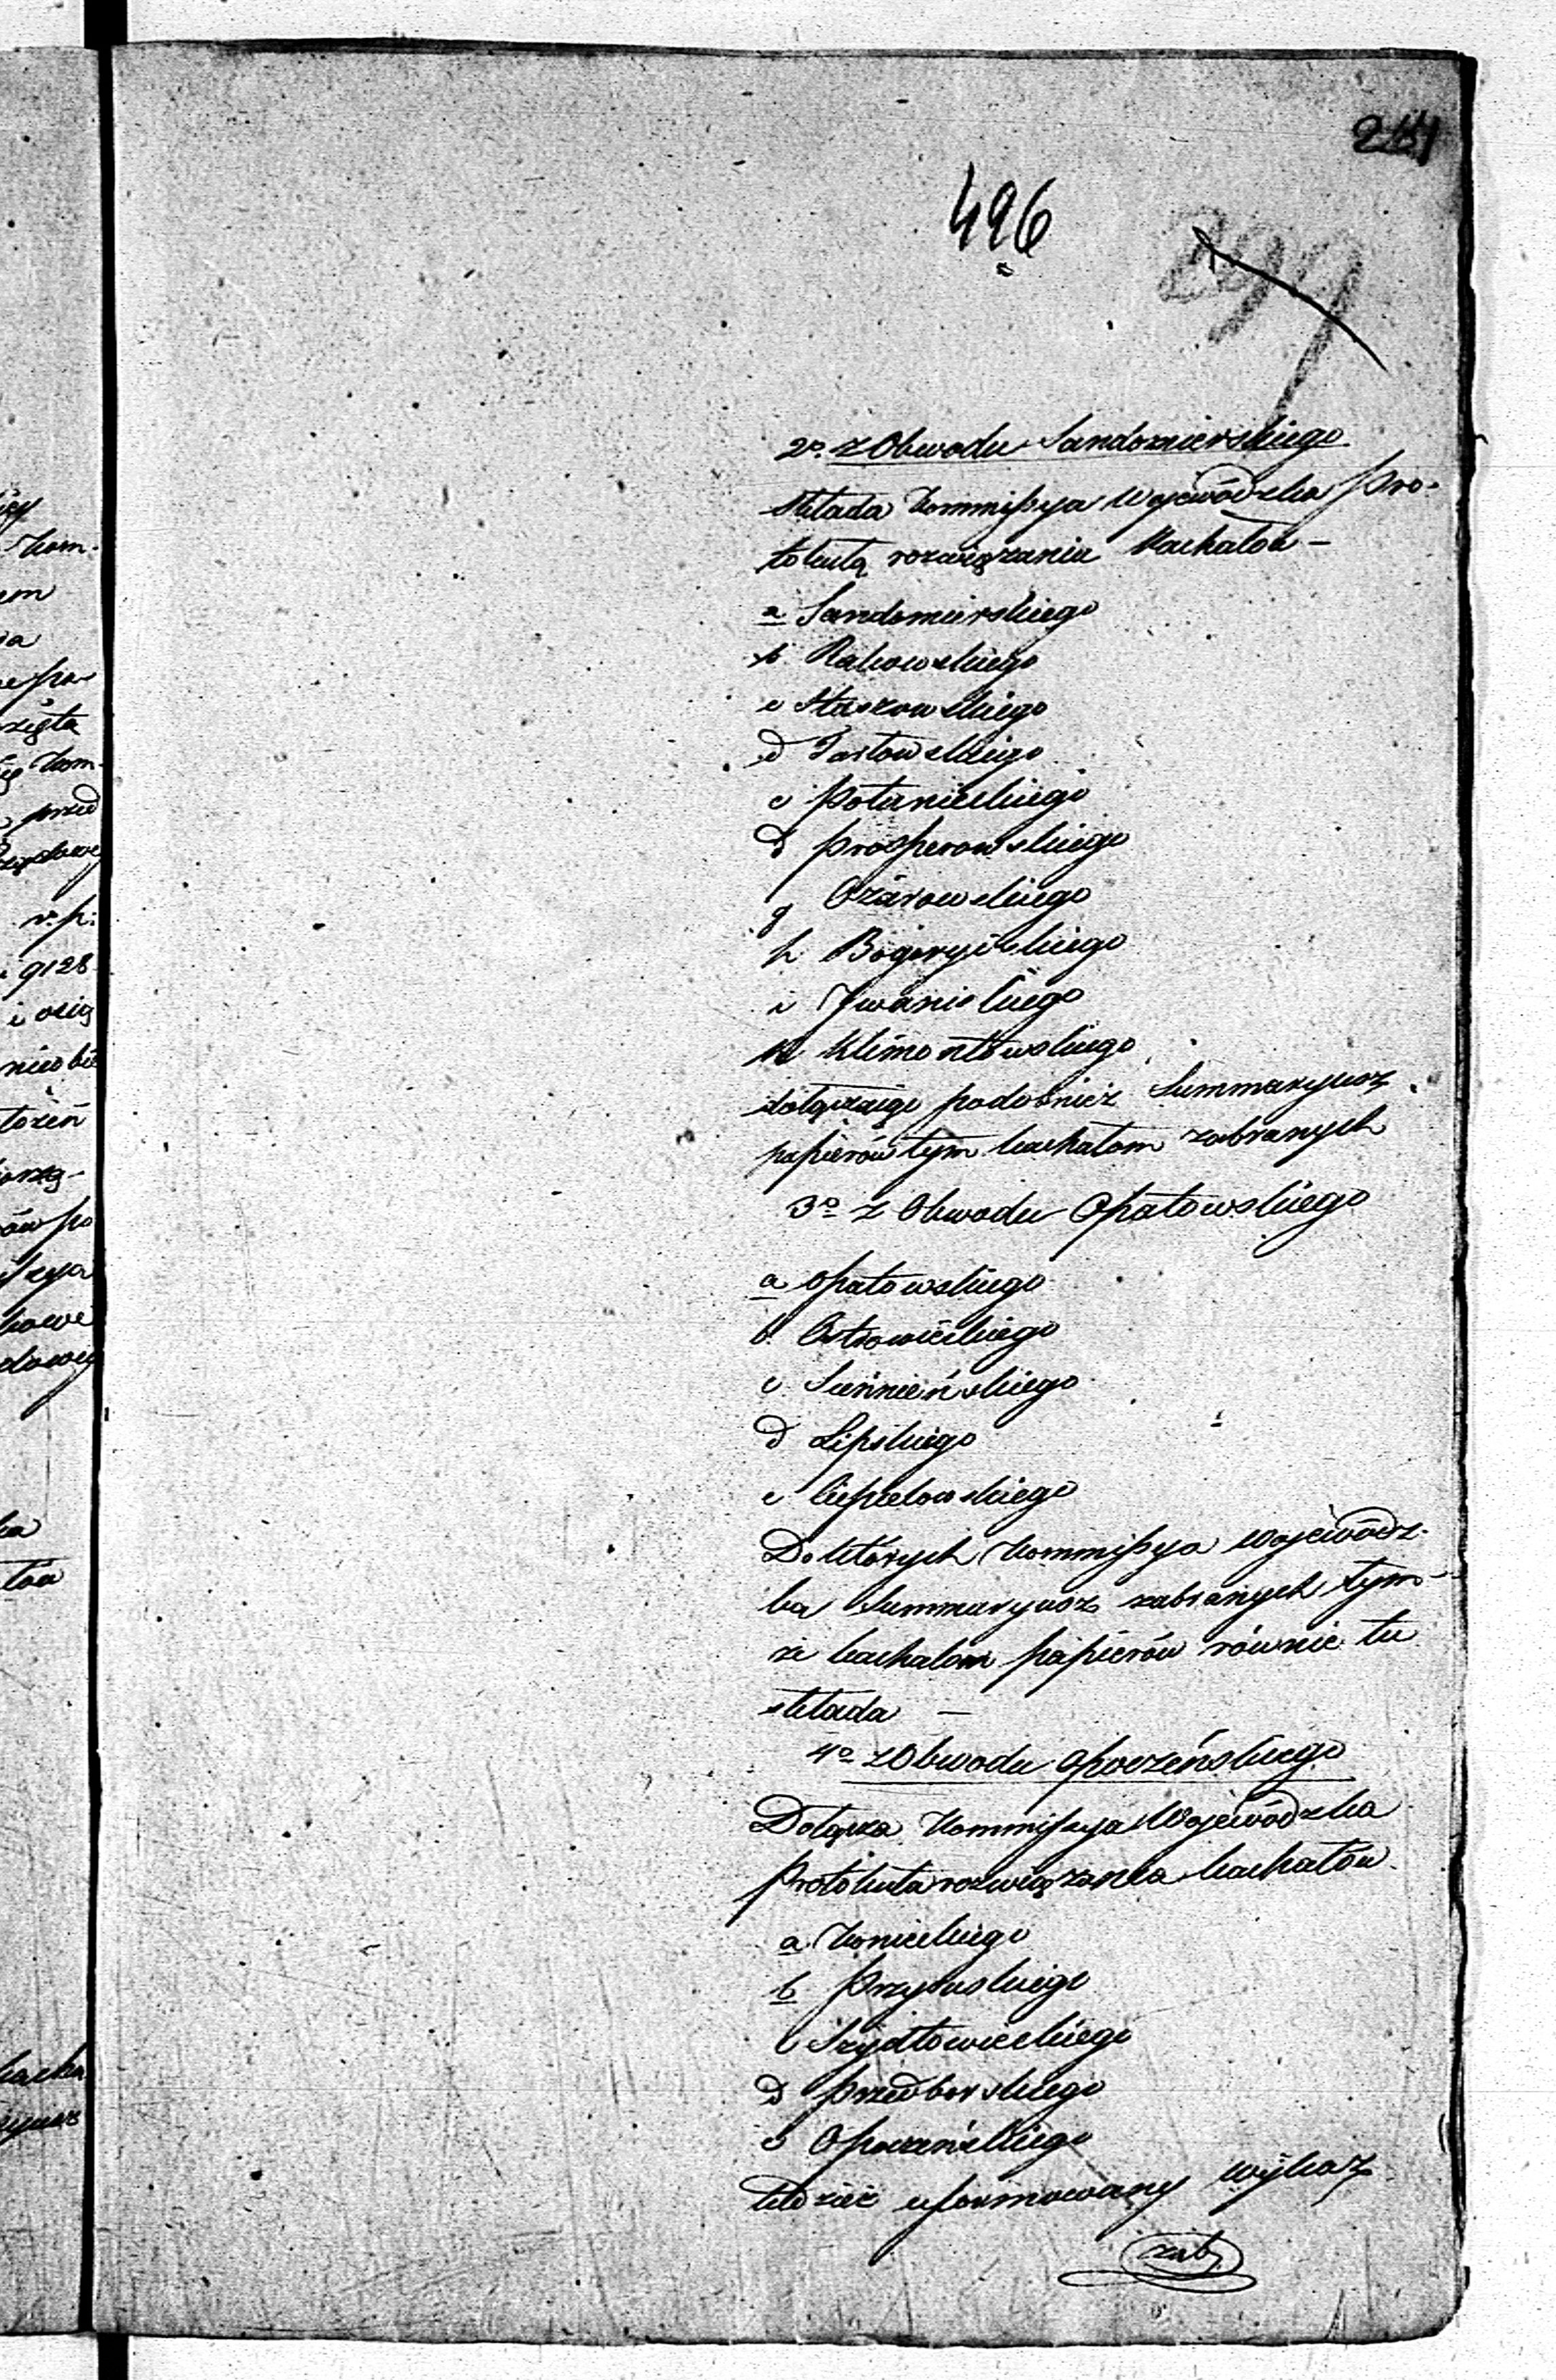 496
299
2o. z Obwodu Sandomierskiego
składa Kommissya Wojewódzka Pro-
tokułą rozwiązania Kachałów –
a Sandomierskiego
b. Rakowskiego
c Staszowskiego
d Tarłowskiego
e Połanieckiego
d Prosperowskiego
g Ożarowskiego
h Bogoryiskiego
i Iwaniskiego
k Klimontowskiego
dołączaiąc podobnież Summaryusz
papierów tym kachałom zabranych
3o z Obwodu Opatowskiego
a Opatowskiego
b. Ostrowieckiego
c Siennieńskiego
d Lipskiego
e Ciepielowskiego
Do których Kommissya Wojewódz-
ka Summaryusz zabranych tym-
że kachałom papierów równie tu
składa –
4o z Obwodu Opoczeńskiego
Dołącza Kommissya Wojewódzka
Protokuła rozwiązania kachałów
a Konieckiego
b Przysuskiego
c Szydłowieckiego
d Przedborskiego
e Opoczeńskiego
tudzież uformowany wykaz
zab.
iey
Kom-
em
ia
zięta
Kom-
przed
9128
i osią
howe
ka
tów
kacha